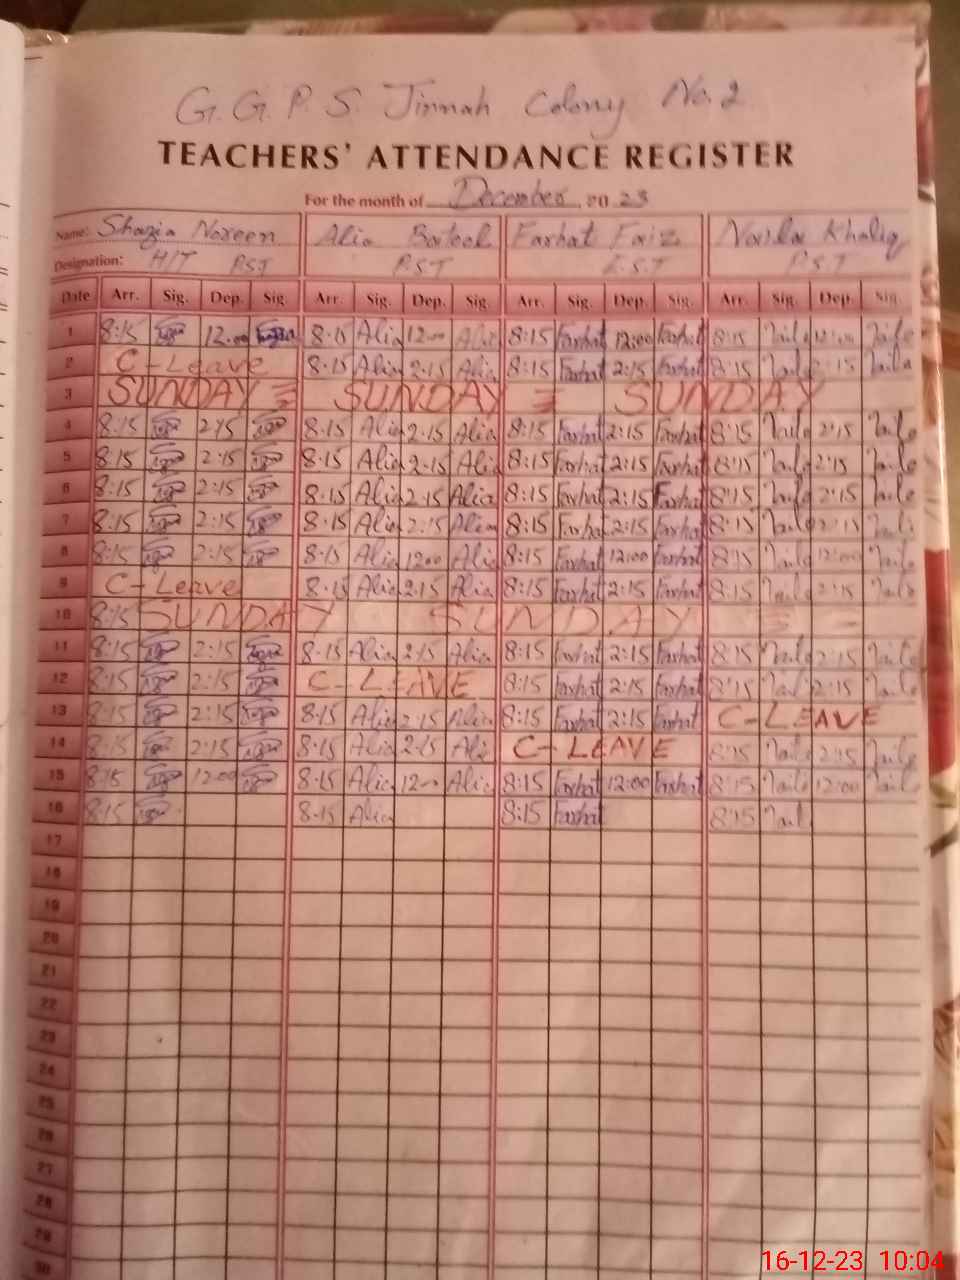 G.G.P.S. Jinnah Colony No. 2
TEACHERS' ATTENDANCE REGISTER
For the month of December, 20 23
Name: Shazia Noreen Alia Batool Farhat Faiz Khaliq
Designation: H/T P.S.T P.S.T E.S.T P.S.T
Date Arr. Sig. Dep. Sig. Arr. Sig. Dep. Sig. Arr. Sig. Dep. Sig. Arr. Sig. Dep. Sig.
1 8:15 12:00 8:15 Alia 12:00 Alia 8:15 Farhat 12:00 Farhat 8:15 12:00
2 C-Leave 8:15 Alia 2:15 Alia 8:15 Farhat 2:15 Farhat 8:15 2:15
3 SUNDAY SUNDAY SUNDAY
4 8:15 2:15 8:15 Alia 2:15 Alia 8:15 Farhat 2:15 Farhat 8:15 2:15
5 8:15 2:15 8:15 Alia 2:15 Alia 8:15 Farhat 2:15 Farhat 8:15 2:15
6 8:15 2:15 8:15 Alia 2:15 Alia 8:15 Farhat 2:15 Farhat 8:15 2:15
7 8:15 2:15 8:15 Alia 2:15 Alia 8:15 Farhat 2:15 Farhat 8:15 2:15
8 8:15 2:15 8:15 Alia 12:00 Alia 8:15 Farhat 12:00 Farhat 8:15 12:00
9 C-Leave 8:15 Alia 2:15 Alia 8:15 Farhat 2:15 Farhat 8:15 2:15
10 8:15 SUNDAY SUNDAY
11 8:15 2:15 8:15 Alia 2:15 Alia 8:15 Farhat 2:15 Farhat 8:15 2:15
12 8:15 2:15 C-LEAVE 8:15 Farhat 2:15 Farhat 8:15 2:15
13 8:15 2:15 8:15 Alia 2:15 Alia 8:15 Farhat 2:15 Farhat C-LEAVE
14 8:15 2:15 8:15 Alia 2:15 Alia C-LEAVE 8:15 2:15
15 8:15 12:00 8:15 Alia 12:00 Alia 8:15 Farhat 12:00 Farhat 8:15 12:00
16 8:15 8:15 Alia 8:15 Farhat 8:15
17
18
19
20
21
22
23
24
25
26
27
28
29
30
16-12-23 10:04